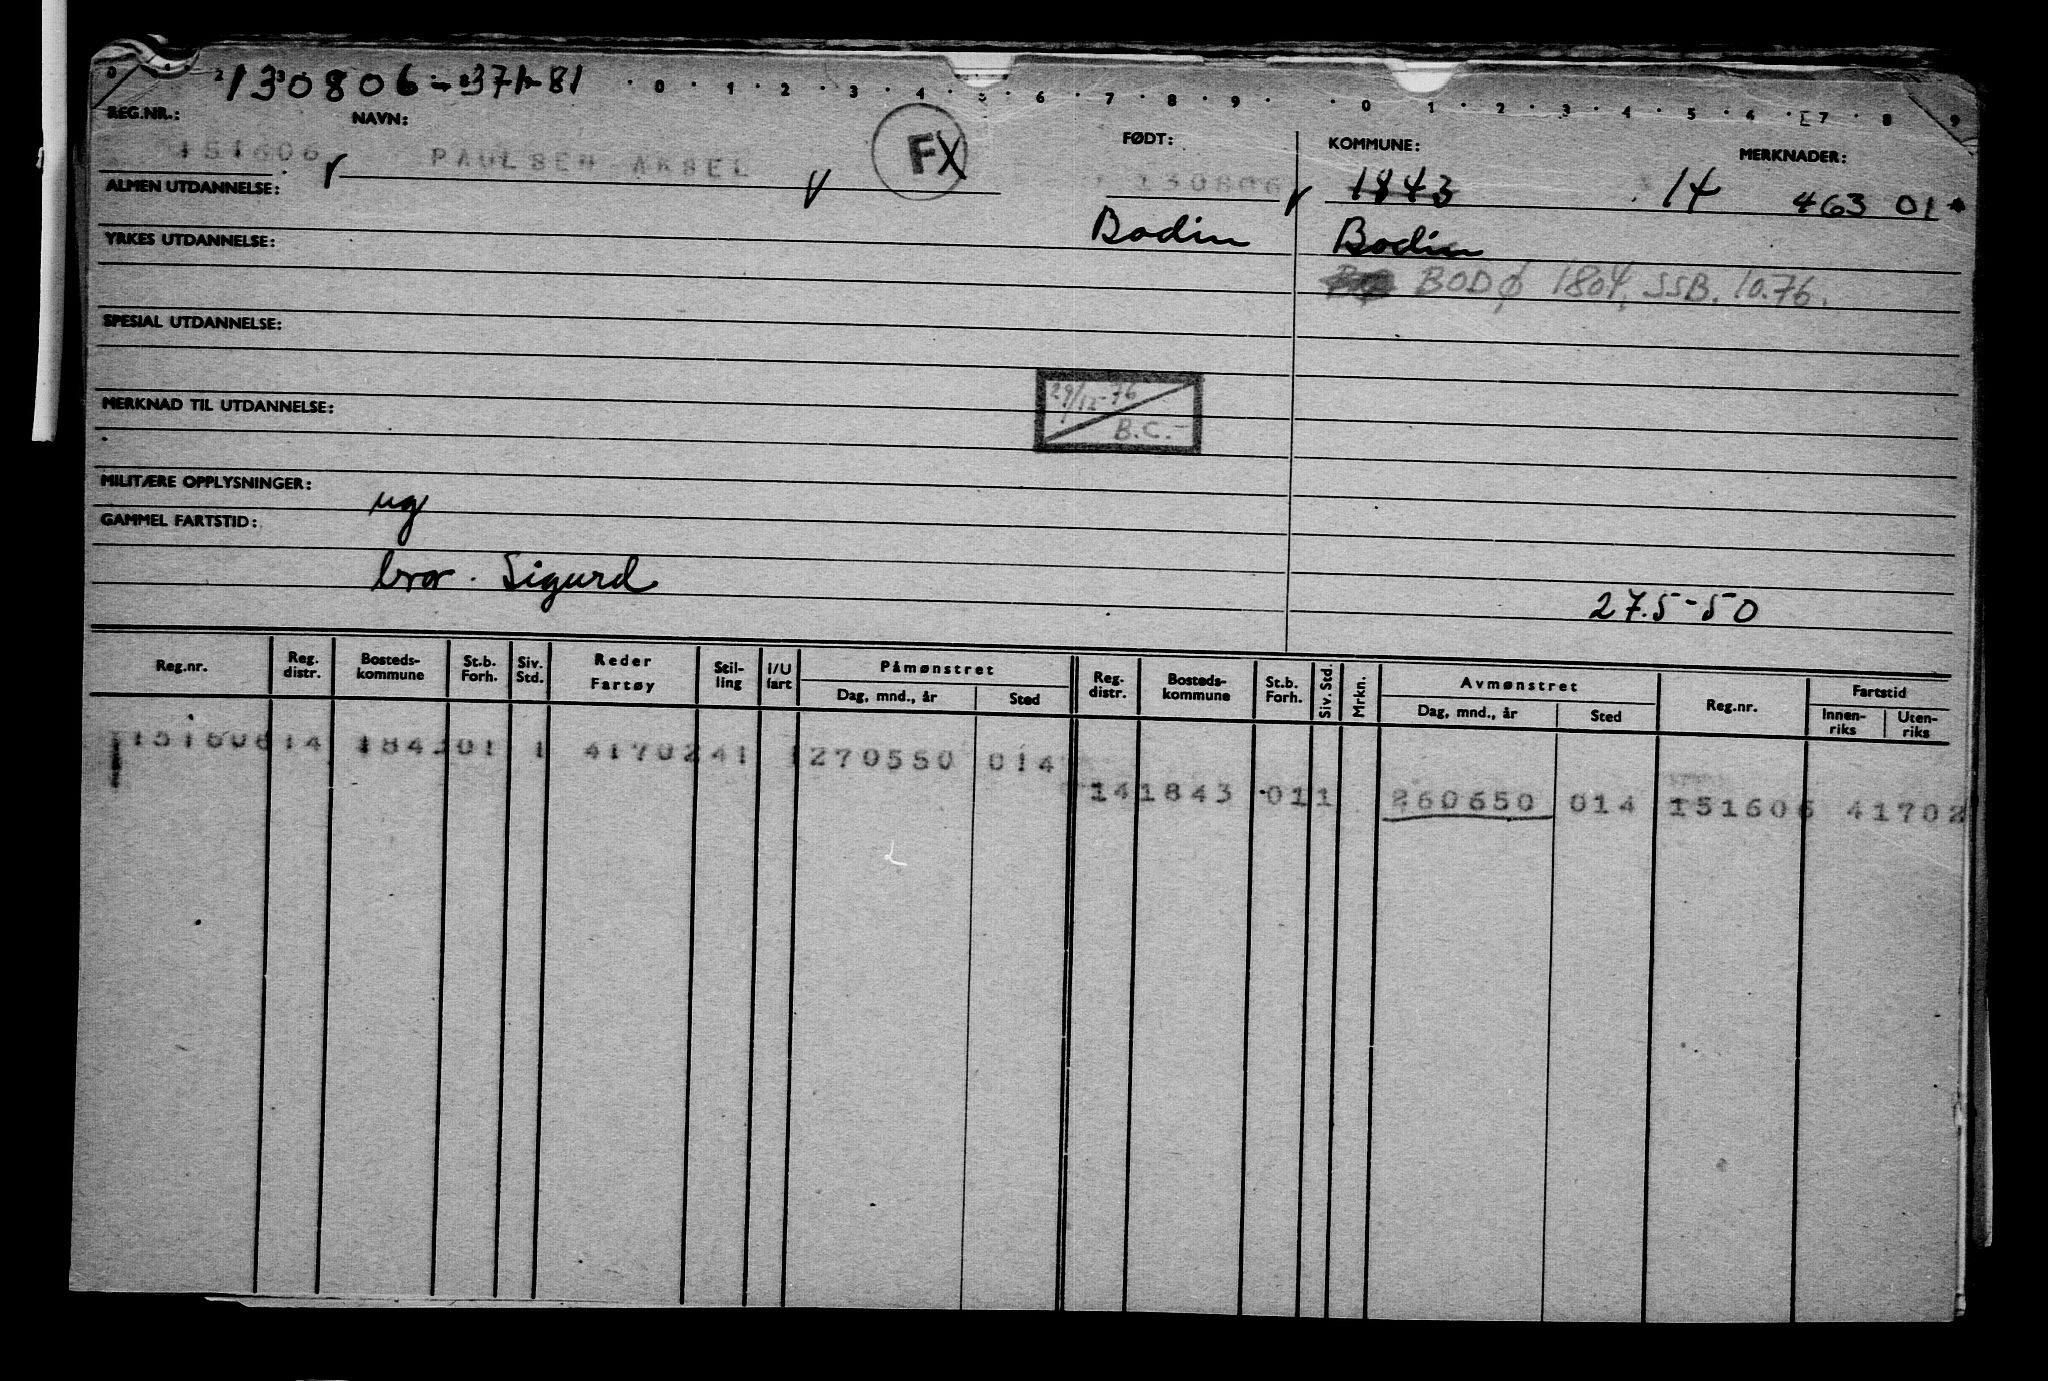 130806-37181
0 1 2 3 4 5 6 7 8 9 0 1 2 3 4 5 6 7 8 9
REG.NR.: NAVN: FØDT: KOMMUNE: MERKNADER:
151606 PAULSEN AKSEL FX 130806 1843 14 463 01
ALMEN UTDANNELSE:
Bodin Bodin
YRKES UTDANNELSE:
BODØ 1804, SSB. 10.76.
SPESIAL UTDANNELSE:
29/12-76
B.C.-
MERKNAD TIL UTDANNELSE:
MILITÆRE OPPLYSNINGER: ug
GAMMEL FARTSTID:
bror. Sigurd
27.5-50
Reg.nr. Reg. distr. Bosteds-kommune St.b. Forh. Siv. Std. Reder Fartøy Stil-ling I/U fart Påmønstret Dag, mnd., år Sted Reg. distr. Bosteds-kommune St.b. Forh. Siv. Std. Mrkn. Avmønstret Dag, mnd., år Sted Reg.nr. Fartstid Innen-riks Uten-riks
151606 14 1843 01 1 41702 41 1 270550 014
14 1843 01 1 260650 014 151606 41702